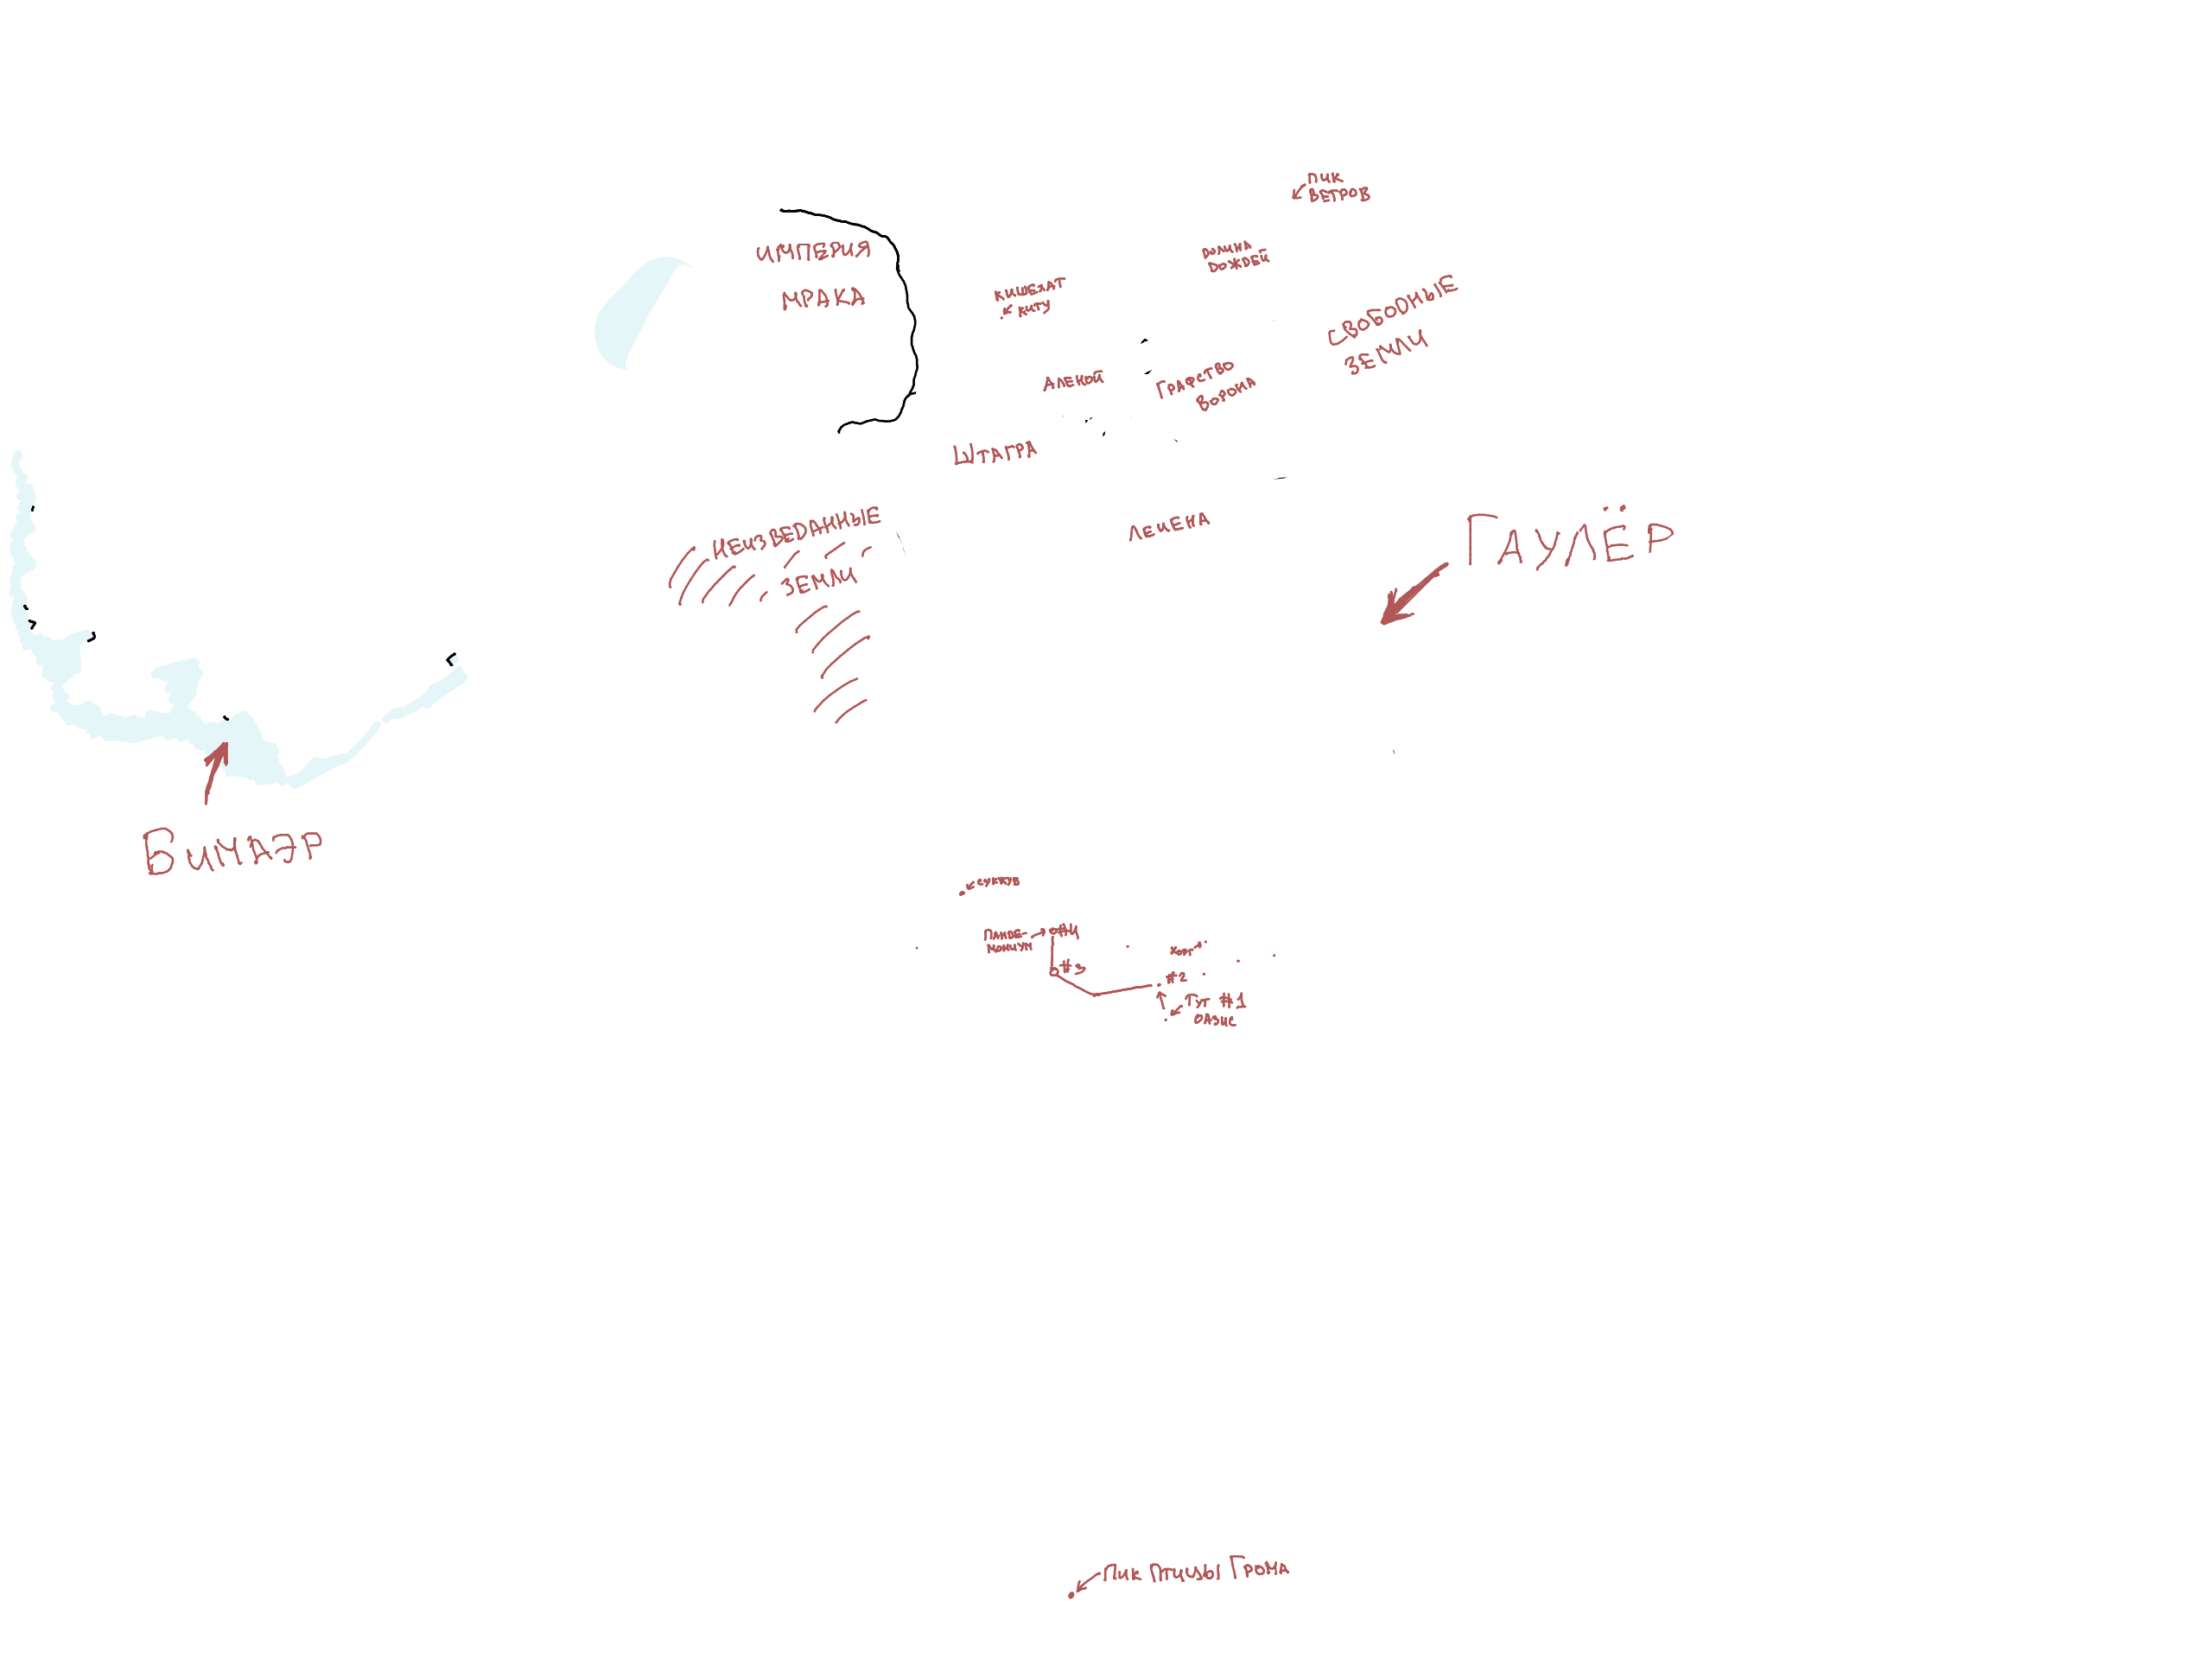 ПИК
ВЕТРОВ
ИМПЕРИЯ
МРАКА
ДОЛИНА
ДОЖДЕЙ
КИТУ
СВОБОДНЫЕ
ЗЕМЛИ
АЛЕНОЙ
ГРАФСТВО
ВОРОНА
ШТАГРА
НЕИЗВЕДАННЫЕ
ЗЕМЛИ
ЛЕЦЕНА
ГАУЛЁР
БИМАЭР
СУККУБ
ПАНДЕ-
МОНИУМ
#4
#3
ХОРГ
#2
ТУТ #1
ОАЗИС
ПИК ПТИЦЫ ГРОМА